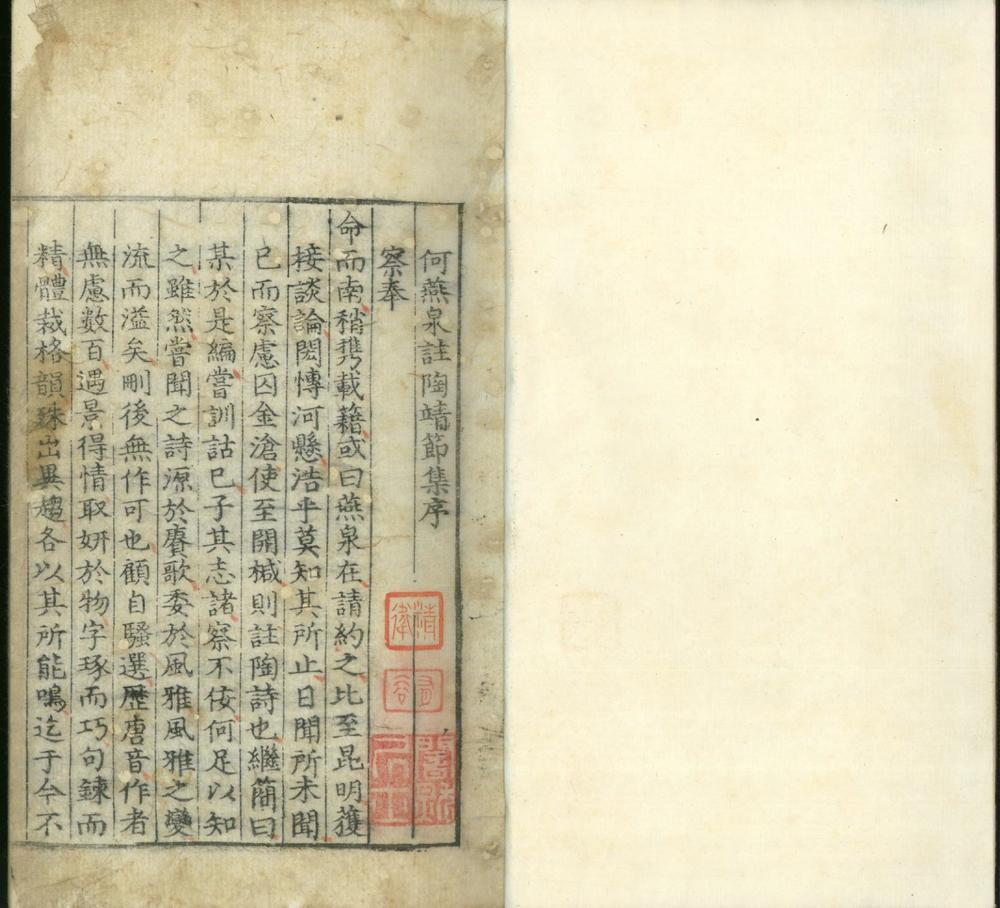 何燕泉註陶靖節集序
察奉
命而南稍携載籍或曰燕泉在請約之比至昆明獲
接談論閎博河懸浩乎莫知其所止日聞所未聞
已而察慮囚金滄使至開椷則註陶詩也繼簡曰
某於是編嘗訓詁巳子其志諸察不佞何足以知
之雖然嘗聞之詩源於賡歌委於風雅風雅之變
流而溢矣刪後無作可也顧自騷選歷唐音作者
無慮數百遇景得情取妍於物字琢而巧句鍊而
精體裁格韻殊出異趨各以其所能鳴迄于今不